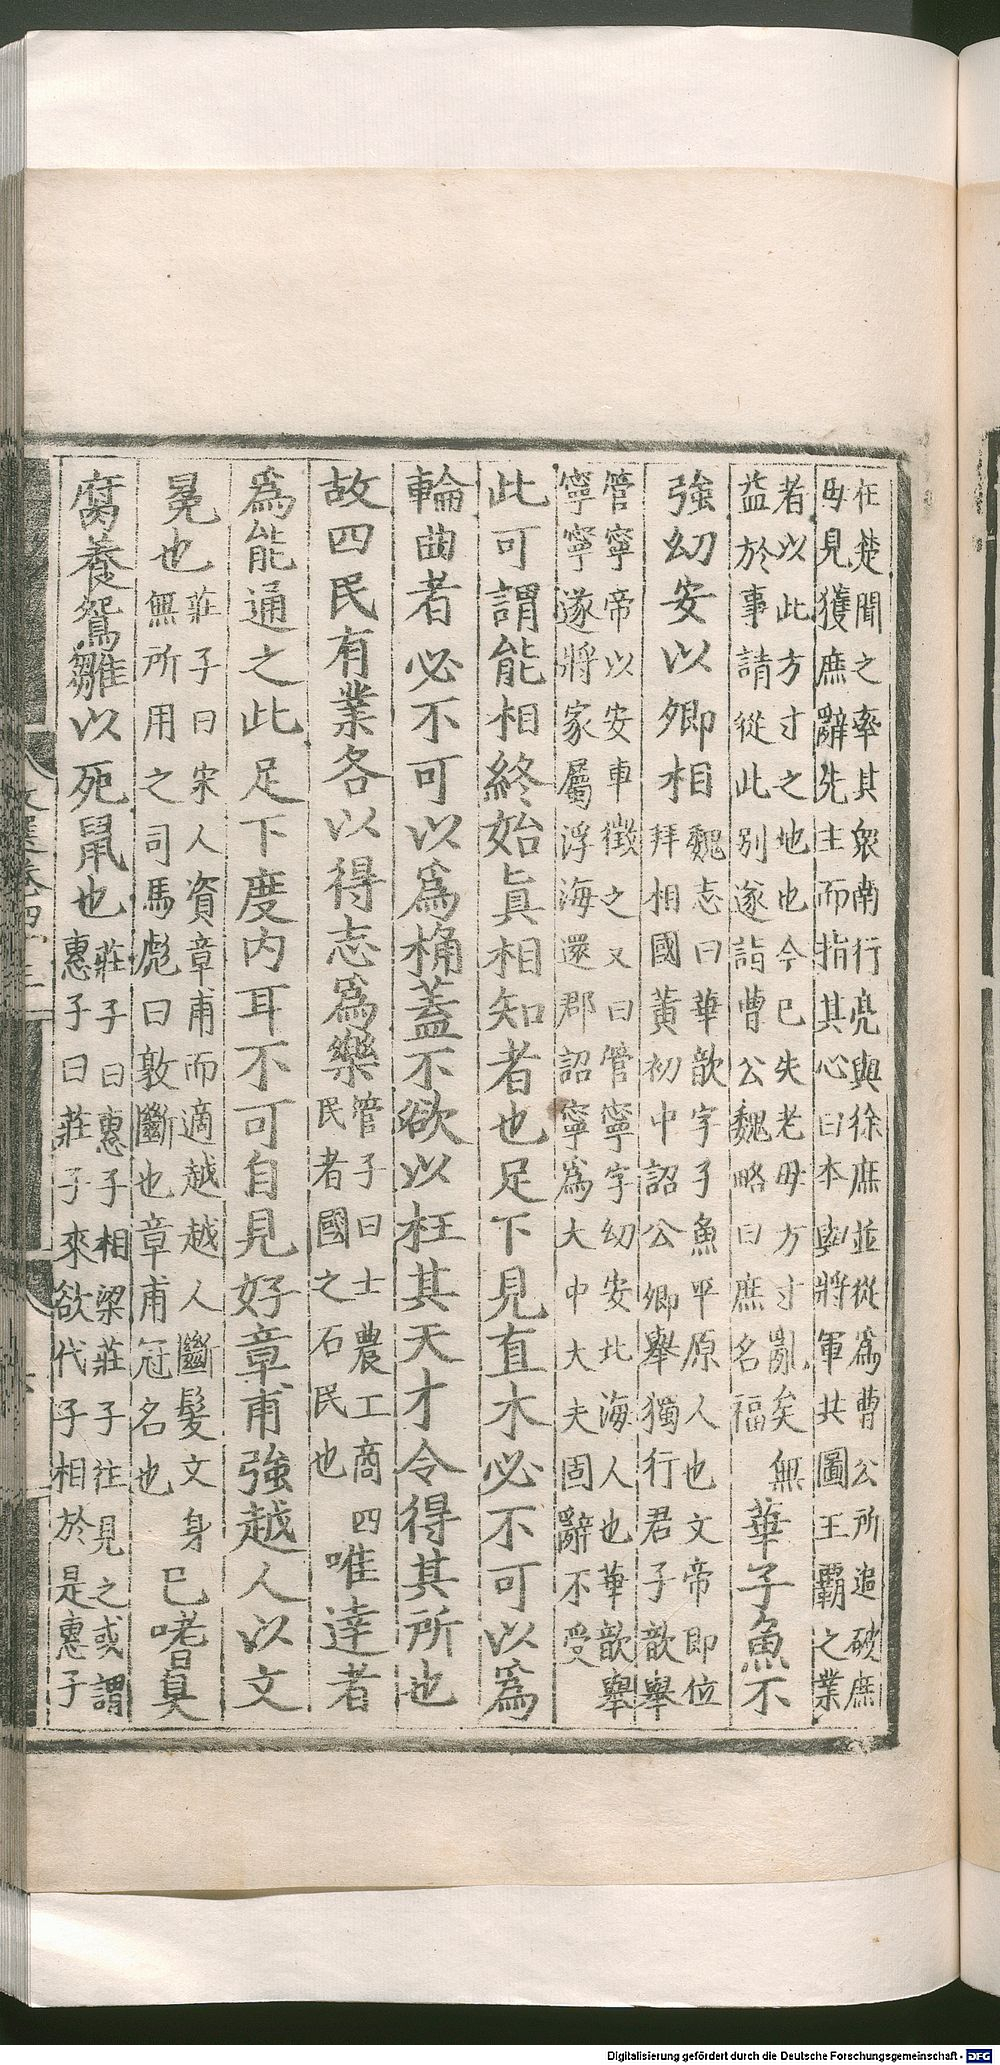 在楚聞之率其衆南行亮與徐庶並從爲曹公所追破庶
母見獲庶辭先主而指其心曰本與將軍共圖王霸之業
者以此方寸之地也今已失老母方寸亂矣無
益於事請從此別遂詣曹公魏略曰庶名福
華子魚不
強幼安以卿相
魏志曰華歆字子魚平原人也文帝即位
拜相國黃初中詔公卿舉獨行君子歆舉
管寧帝以安車徵之又曰管寧字幼安北海人也華歆舉
寧寧遂將家屬浮海還郡詔寧爲大中大夫固辭不受
此可謂能相終始眞相知者也足下見直木必不可以爲
輪曲者必不可以爲桷蓋不欲以枉其天才令得其所也
故四民有業各以得志爲樂
管子曰士農工商四
民者國之石民也
唯達者
爲能通之此足下度內耳不可自見好章甫強越人以文
冕也
莊子曰宋人資章甫而適越越人斷髮文身
無所用之司馬彪曰敦斷也章甫冠名也
已嗜臭
腐養鴛雛以死鼠也
莊子曰惠子相梁莊子往見之或謂
惠子曰莊子來欲代子相於是惠子
文選卷四十三
Digitalisierung gefördert durch die Deutsche Forschungsgemeinschaft - DFG